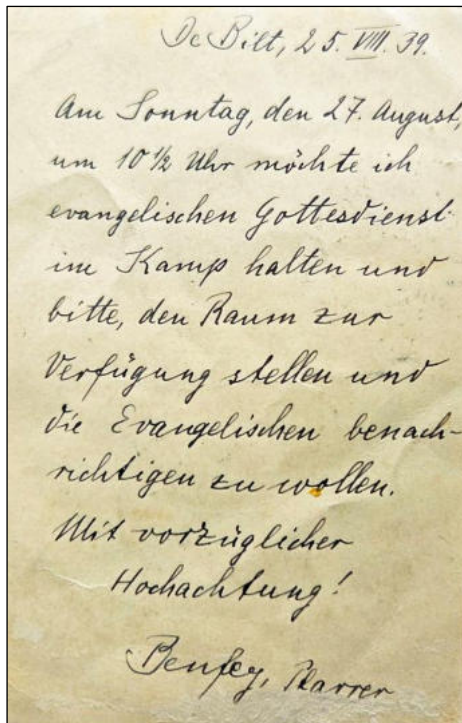 De Bilt, 25. VIII. 39.
Am Sonntag, den 27. August,
um 10 ½ Uhr möchte ich
evangelischen Gottesdienst
im Kamp halten und
bitte, den Raum zur
Verfügung stellen und
die Evangelischen benach-
richtigen zu wollen.
Mit vorzüglicher
Hochachtung!
Benfey, Pfarrer